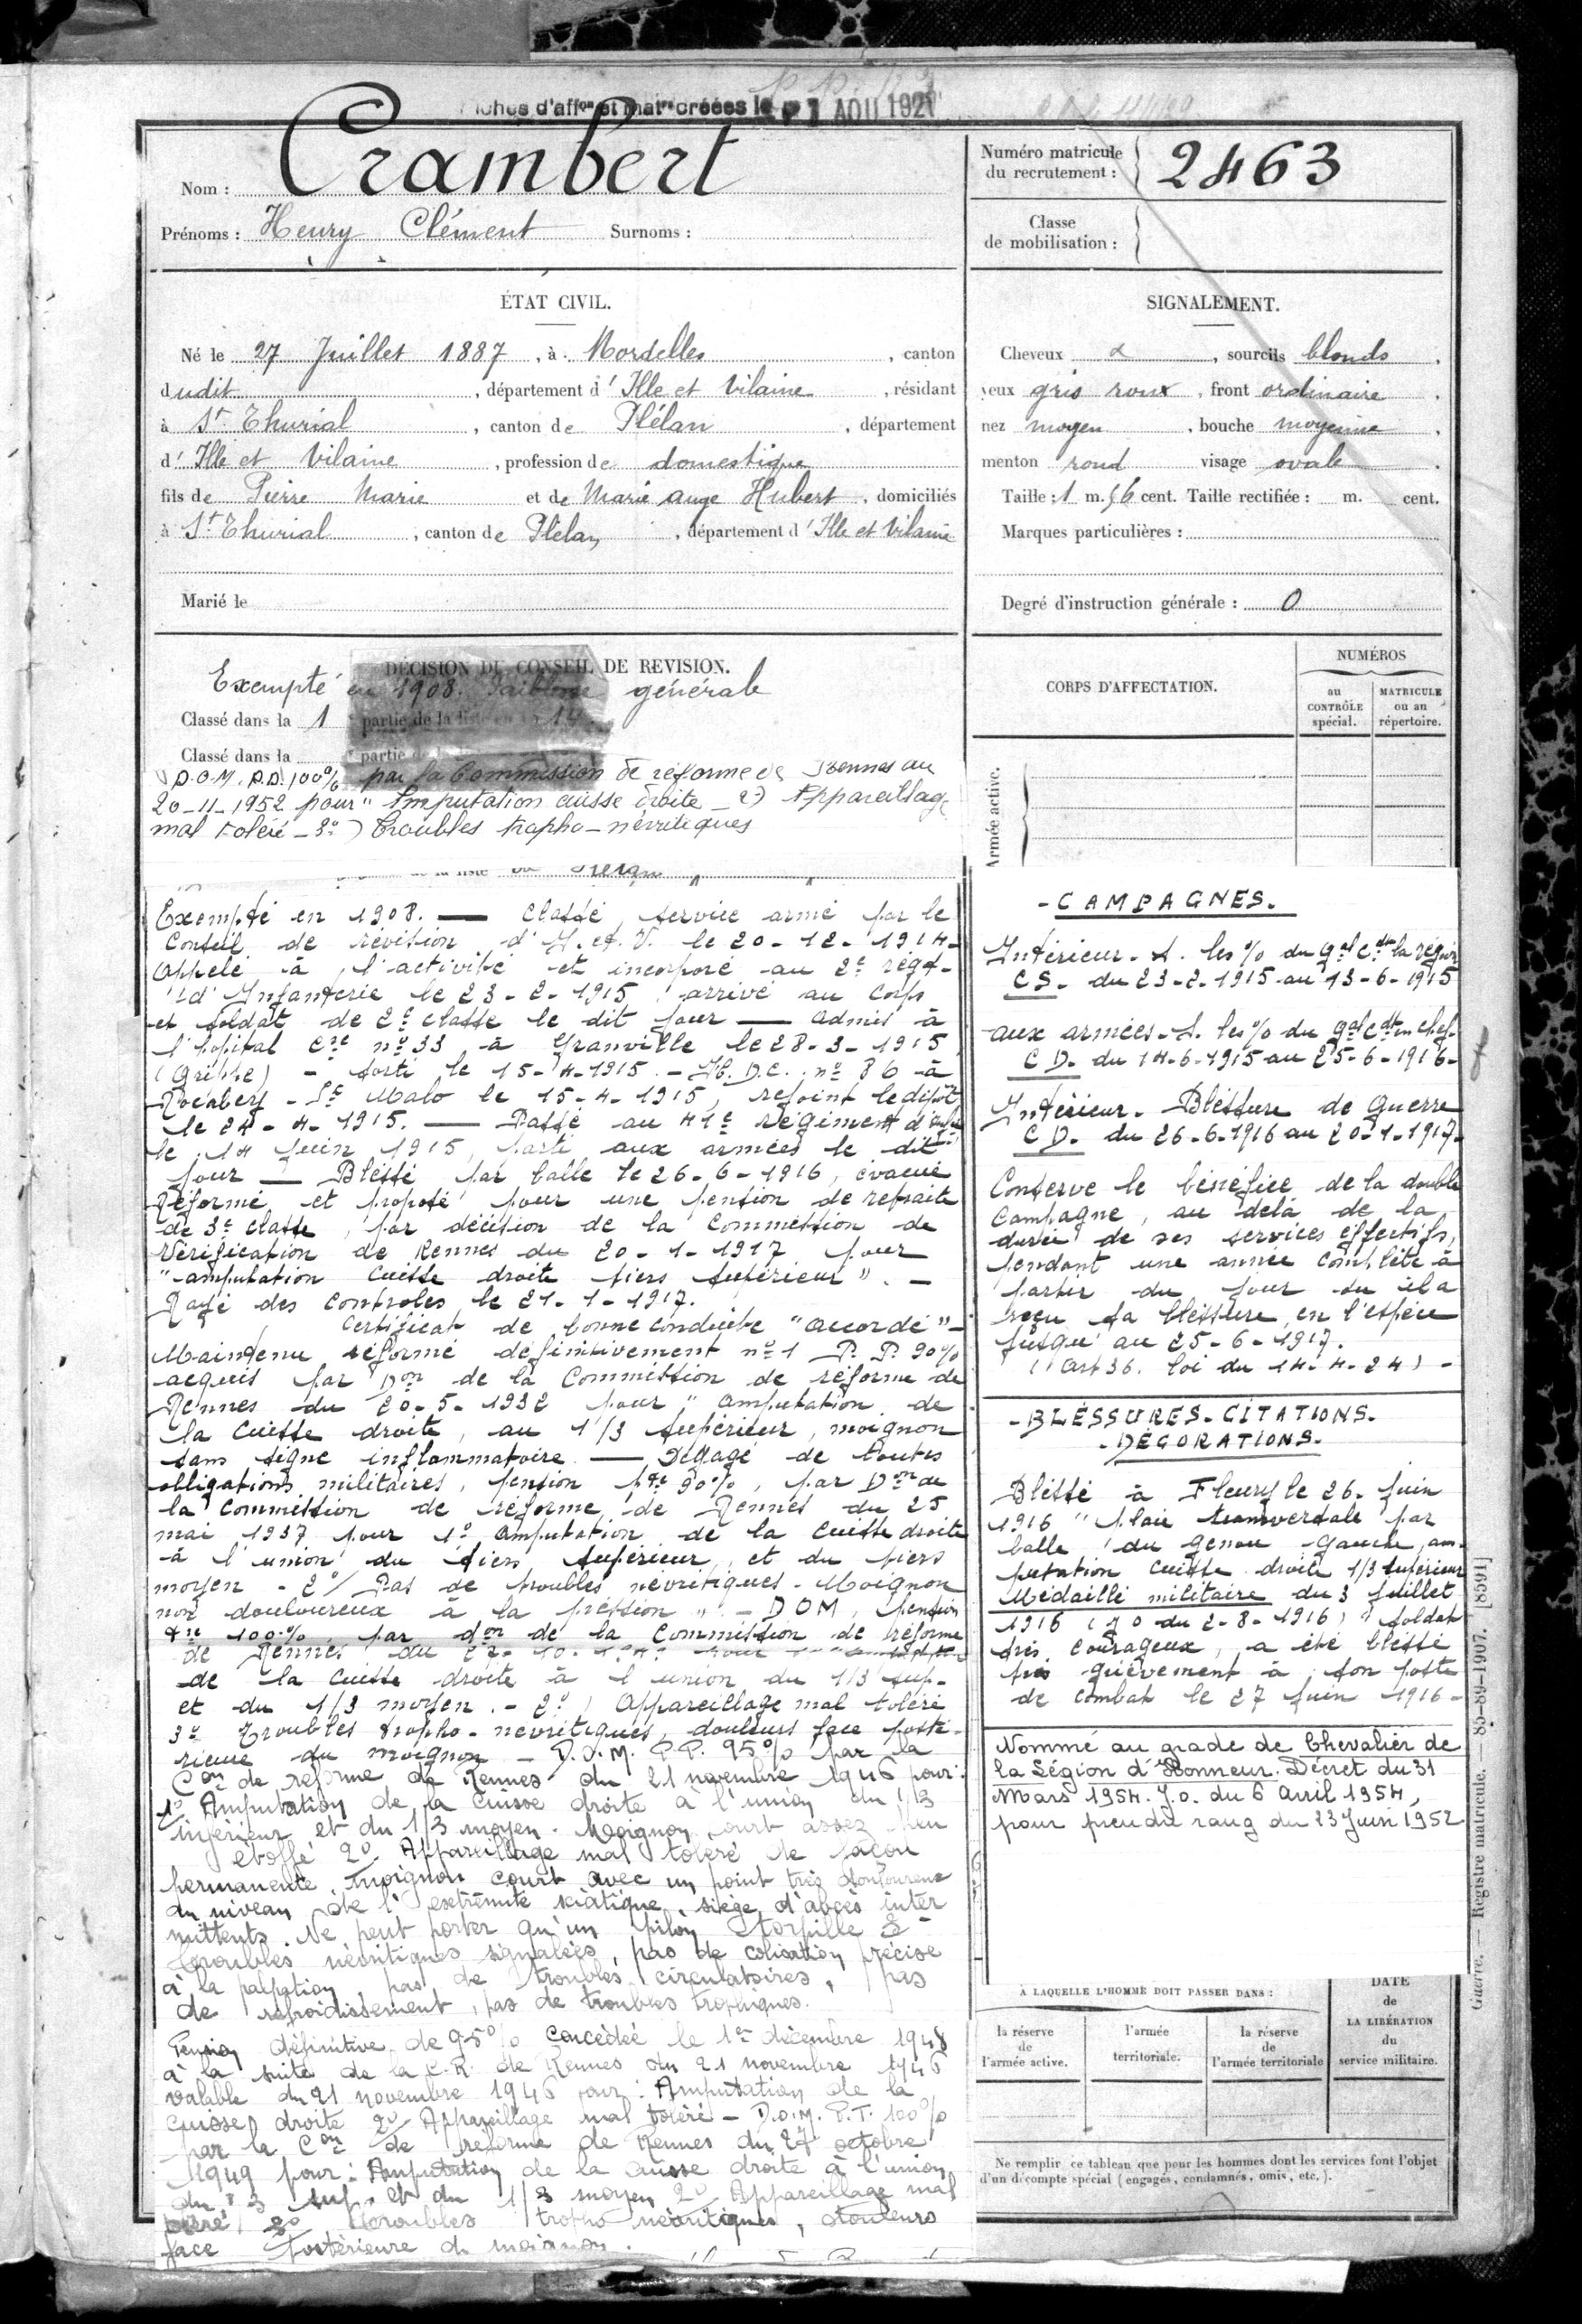 Fiches d'affon et matr créées le 1 AOU 192
Nom : Crambert
Prénoms : Henry Clément Surnoms :
Numéro matricule
du recrutement : 2463
Classe
de mobilisation :
ÉTAT CIVIL.
Né le 27 Juillet 1887, à Mordelles, canton
dudit, département d'Ille et Vilaine, résidant
à St Thurial, canton de Plélan, département
d'Ille et Vilaine, profession de domestique
fils de Pierre Marie et de Marie ange Hubert, domiciliés
à St Thurial, canton de Plélan, département d'Ille et Vilaine
Marié le
SIGNALEMENT.
Cheveux &, sourcils blonds.
yeux gris roux, front ordinaire.
nez moyen, bouche moyenne.
menton rond visage ovale.
Taille : 1 m. 56 cent. Taille rectifiée : m. cent.
Marques particulières :
Degré d'instruction générale : 0
DÉCISION DU CONSEIL DE REVISION.
Exempté en 1908. Faiblesse générale
Classé dans la 1 partie de la liste en 1914.
Classé dans la partie de
D.O.M. P.D. 100% par la Commission de réforme de Rennes au
20-11-1952 pour " Amputation cuisse droite - 2) Appareillage
mal toléré - 3o) Troubles tropho-névritiques
CORPS D'AFFECTATION.
NUMÉROS
au
CONTRÔLE
spécial.
MATRICULE
ou au
répertoire.
Armée active.
de la liste
Exempté en 1908. — Classé service armé par le
Conseil de révision d'I. et. V. le 20-12-1914-
Appelé à l'activité et incorporé au 2e régt-
d'Infanterie le 23-2-1915, arrivé au corps
et soldat de 2e classe le dit jour — Admis à
l'hopital Cre no 33 à Granville le 28-3-1915
(Grippe) - Sorti le 15-4-1915. - H. D.C. no 86 à
Rocabey - St Malo le 15-4-1915, rejoint le dépôt
le 24-4-1915. — Passé au 41e régiment d'Infie
le 14 juin 1915, parti aux armées le dit
jour — Blessé par balle le 26-6-1916, évacué
Réformé et proposé pour une pension de retraite
de 3e classe, par décision de la Commission de
Vérification de Rennes du 20-1-1917 pour
"amputation cuisse droite tiers supérieur". -
Rayé des contrôles le 21-1-1917.
Certificat de bonne conduite "accordé" -
Maintenu réformé définitivement no 1 P.P. 90%
acquis par Don de la Commission de réforme de
Rennes du 20-5-1932 pour "amputation de
la cuisse droite, au 1/3 supérieur, moignon
sans signe inflammatoire. — Dégagé de toutes
obligations militaires, pension pte 90%, par Don de
la Commission de réforme de Rennes du 25
mai 1937 pour 1o amputation de la cuisse droite
à l'union du tiers supérieur et du tiers
moyen - 2o/ Pas de troubles névritiques - Moignon
non douloureux à la pression" - DOM, pension
tre 100% par don de la Commission de réforme
de Rennes du 27-10-
de la cuisse droite à l'union du 1/3 sup-
et du 1/3 moyen. - 2o) Appareillage mal toléré
3o Troubles tropho-névritiques, douleurs face posté-
rieure du moignon - D.O.M. P.P. 95% par la
Con de réforme de Rennes du 21 novembre 1946 pour :
1o Amputation de la cuisse droite à l'union du 1/3
inférieur et du 1/3 moyen. Moignon court assez bien
étoffé 2o/ Appareillage mal toléré de façon
permanente. Moignon court avec un point très douloureux
au niveau de l'extrémité sciatique, siège d'abcès inter
mittents. Ne peut porter qu'un pilon Torpille 3o
troubles névritiques signalés, pas de précise
à la palpation, pas de troubles circulatoires, pas
de refroidissement, pas de troubles trophiques.
Pension définitive de 95% concédée le 1er décembre 1948
à la suite de la C.R. de Rennes du 21 novembre 1946
valable du 21 novembre 1946 pour : Amputation de la
cuisse droite 2o/ Appareillage mal toléré - D.O.M. P.T. 100%
par la Con de réforme de Rennes du 27 octobre
1949 pour : Amputation de la cuisse droite à l'union
du 1/3 sup. et du 1/3 moyen 2o/ Appareillage mal
toléré 3o troubles tropho névritiques, douleurs
face postérieure du moignon.
- CAMPAGNES.
Intérieur- S. les % du gal ct la région
CS- du 23-2-1915 au 13-6-1915
aux armées- S. les % du gal cdt en chef-
CD- du 14-6-1915 au 25-6-1916-
Intérieur- Bléssure de Guerre
CD- du 26-6-1916 au 20-1-1917-
Conserve le bénéfice de la double
Campagne, au delà de la
durée de ses services effectifs,
pendant une année complète à
partir du jour ou il a
reçu sa bléssure, en l'espèce
jusqu'au 25-6-1917.
(Art 36. loi du 14-4-24) -
- BLÉSSURES- CITATIONS-
- DÉCORATIONS.
Bléssé à Fleury le 26- juin
1916 "plaie transversale par
balle du genou Gauche, am-
putation cuisse droite 1/3 supérieur
Médaillé militaire du 3 juillet
1916 (J O du 2-8-1916) "Soldat
très courageux, a été bléssé
très grièvement à son poste
de combat le 27 juin 1916-
Nommé au grade de Chevalier de
la Légion d'Honneur. Décret du 31
Mars 1954. J.O. du 6 Avril 1954,
pour prendre rang du 23 Juin 1952
À LAQUELLE L'HOMME DOIT PASSER DANS :
la réserve
de
l'armée active.
l'armée
territoriale.
la réserve
de
l'armée territoriale
DATE
de
LA LIBÉRATION
du
service militaire.
Ne remplir ce tableau que pour les hommes dont les services font l'objet
d'un décompte spécial (engagés, condamnés, omis, etc.).
Guerre. — Registre matricule. — 85-89-1907. [8591]